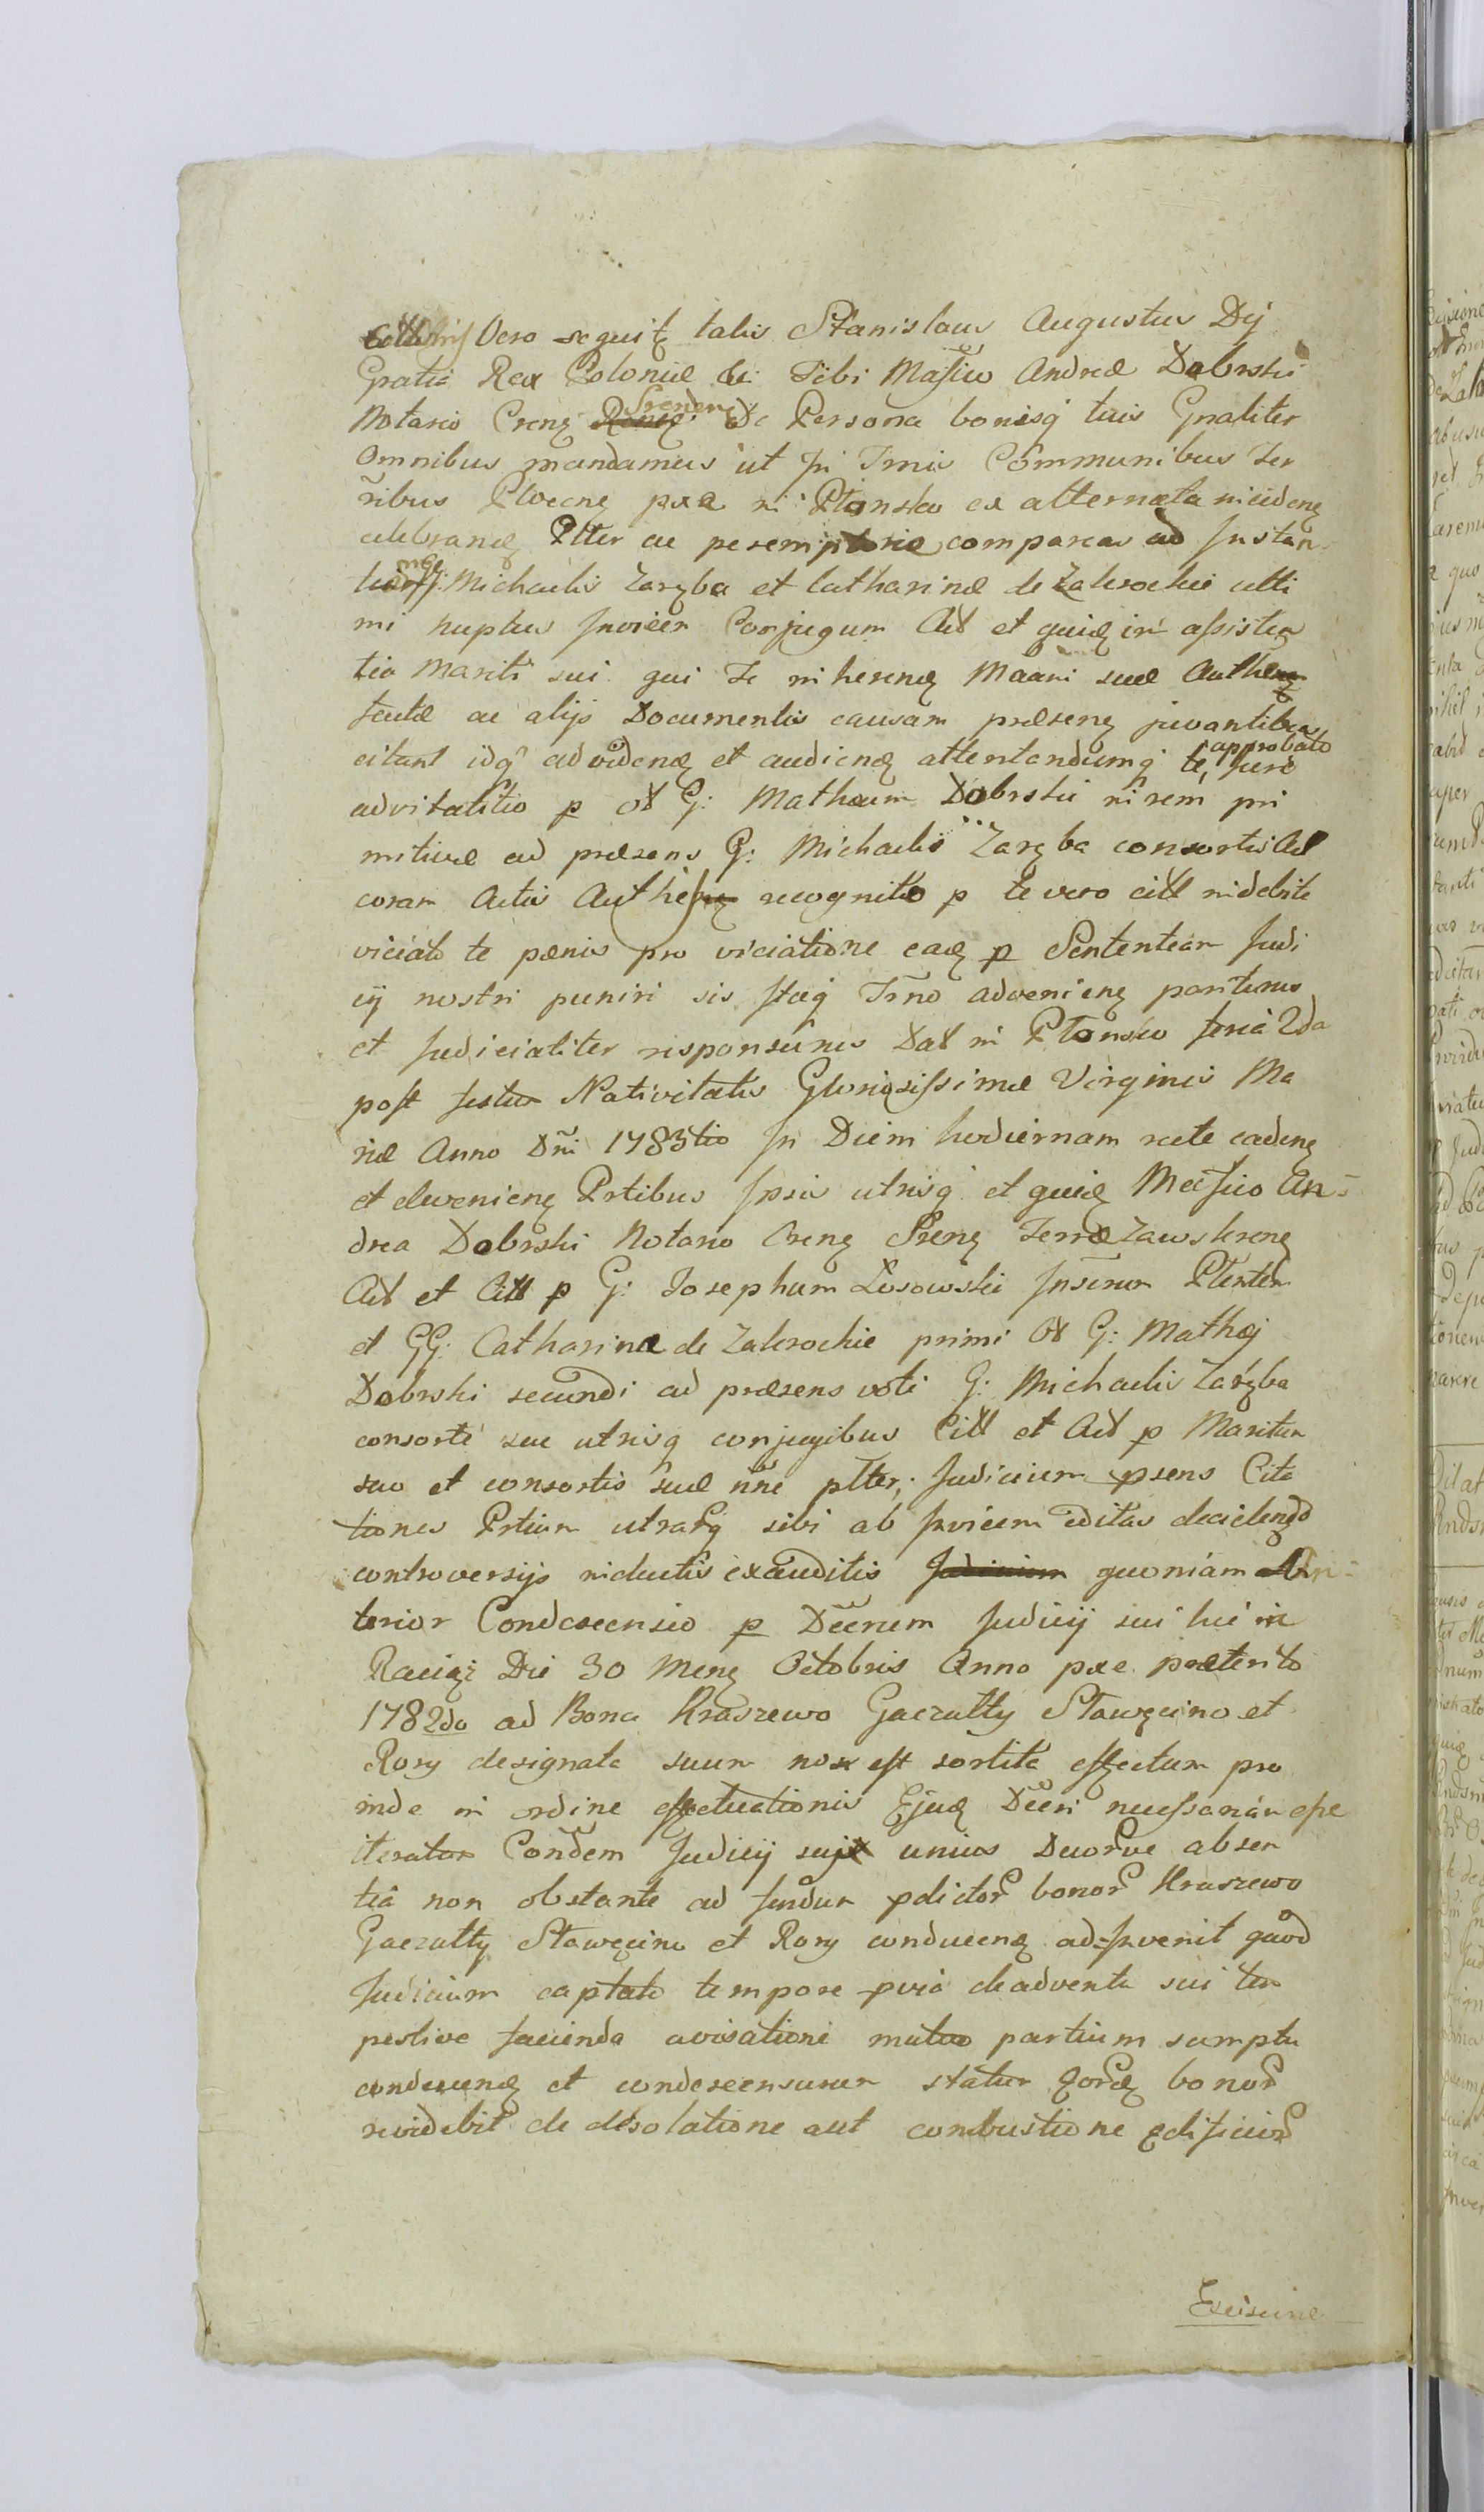 Vero seguit talis Stanislaus Augustus Dij
Gratia Rex Poloniæ &c: Tibi Mafico Andreæ Dobrski
Notario Crenz Srenden De Persona bonisq tuis Gnaliter
Omnibus mandamus ut in Trnis Communibus Ter
ribus Plocenz pxa ni Płonsko ex alternata nicidenz
celebranz Plter ac peremptorie compareas ad Instan-
Michaelis Zaręba et Catharinæ de Zakrockie ulti
mi nuptus Invicem Conjugum Act et quidz in assisten
tia Mariti sui qui Te in herenz Maani suæ Authenz
tentæ ac alijs Documentis causam præsenz juvantibus
citant idq advidenz et audienz attentandumq te, Jure approbato
advitalitio p Ol G: Mathæum Dobrski ni rem pri
mitivæ ad præsens G: Michaelis Zaręba consortis Act
coram Actis Authenz recognito p te vero citt nidebite
viciato te pænis pro viciatione eadz p Sententiam Judi
cij nostri puniri sis Itaq Trno advenienz pariturus
et Judicialiter responsurus Dat ni Płonsko feria 2da
post festum Nativitatis Gloriosissimæ Virginis Ma
riæ Anno Dni 1783tio In Diem hodiernam recte cadenz
et elvenienz Prtibus Ipsis utrisq et quidz Mafico An-
drea Dobrski Notario Crenz Srenz Terræ Zawskrenz
Act et Citt p G: Josephum Losowski Insenor Plenten
et GG: Catharina de Zakrockie primi Ol G: Mathæj
Dobrski secundi ad præsens voti G: Michaelis Zaręba
consorte sue utrisq conjugibus Citt et Act p Maritum
suo et consortis suæ nne plter; Judicium psens Cita
tiones Prtium utrarq sibi ab Invicem editas decidendo
controversijs niductis exauditis Judicium quoniam An-
terior Condescensio p Decrum Judicij sui hic in
Raciąż Die 30 Menz Octobris Anno pxe præterito
1782do ad Bona Kraszewo Gaczułty Sławęcino et
Rory designata suum non est sortita effectum pro
inde in ordine effectuationis Ejudz Decri necessariam esse
iteratam Condem Judicij suj unius Duorve absen
tia non obstante ad fundum pdictor bonor Kraszewo
Gaczułty Sławęcino et Rory conducenz ad-Invenit quod
Judicium captato tempore pvia de adventu sui tem
pestive facienda avisatione mutuo partium sumptu
conducenz et condescensurum statum eordz bonor
revidebit de desolatione aut combustione ædificior
Excisione